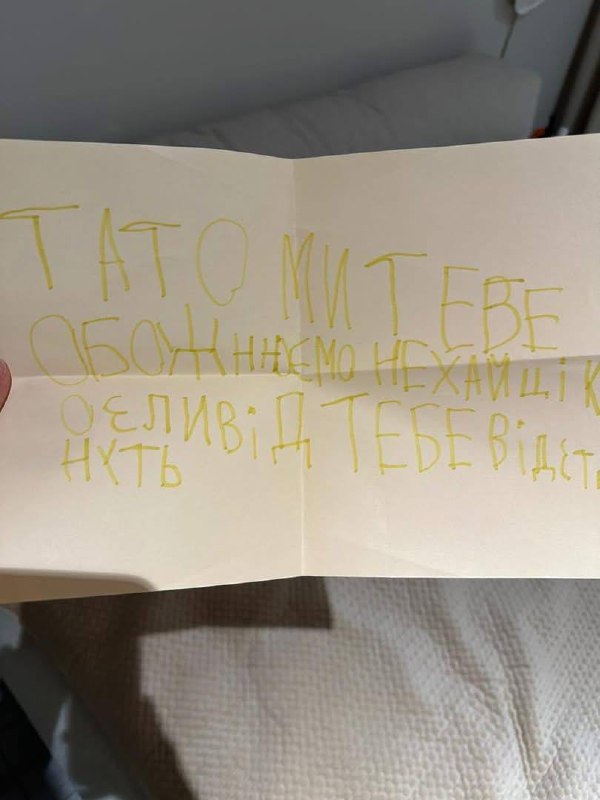 ТАТО МИ ТЕВЕ
ОБОЖННЄМО НЕХАЙ ЦІ К
ОЄЛИ ВіД ТЕБЕ ВіДЄТ
НУТЬ